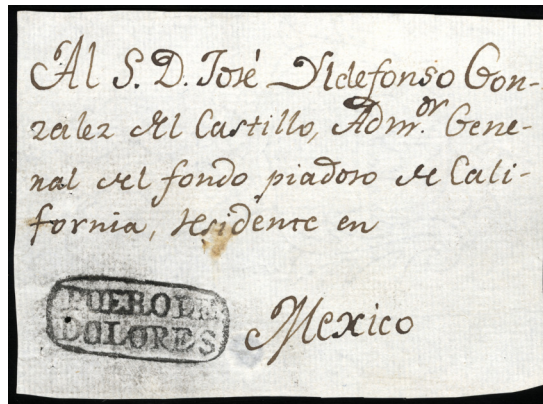 Al S. D. José Yldefonso Gon-
zalez del Castillo, Adm.or Gene-
ral del fondo piadoso de Cali-
fornia, residente en
Mexico
PUEBO LE
DOLORES